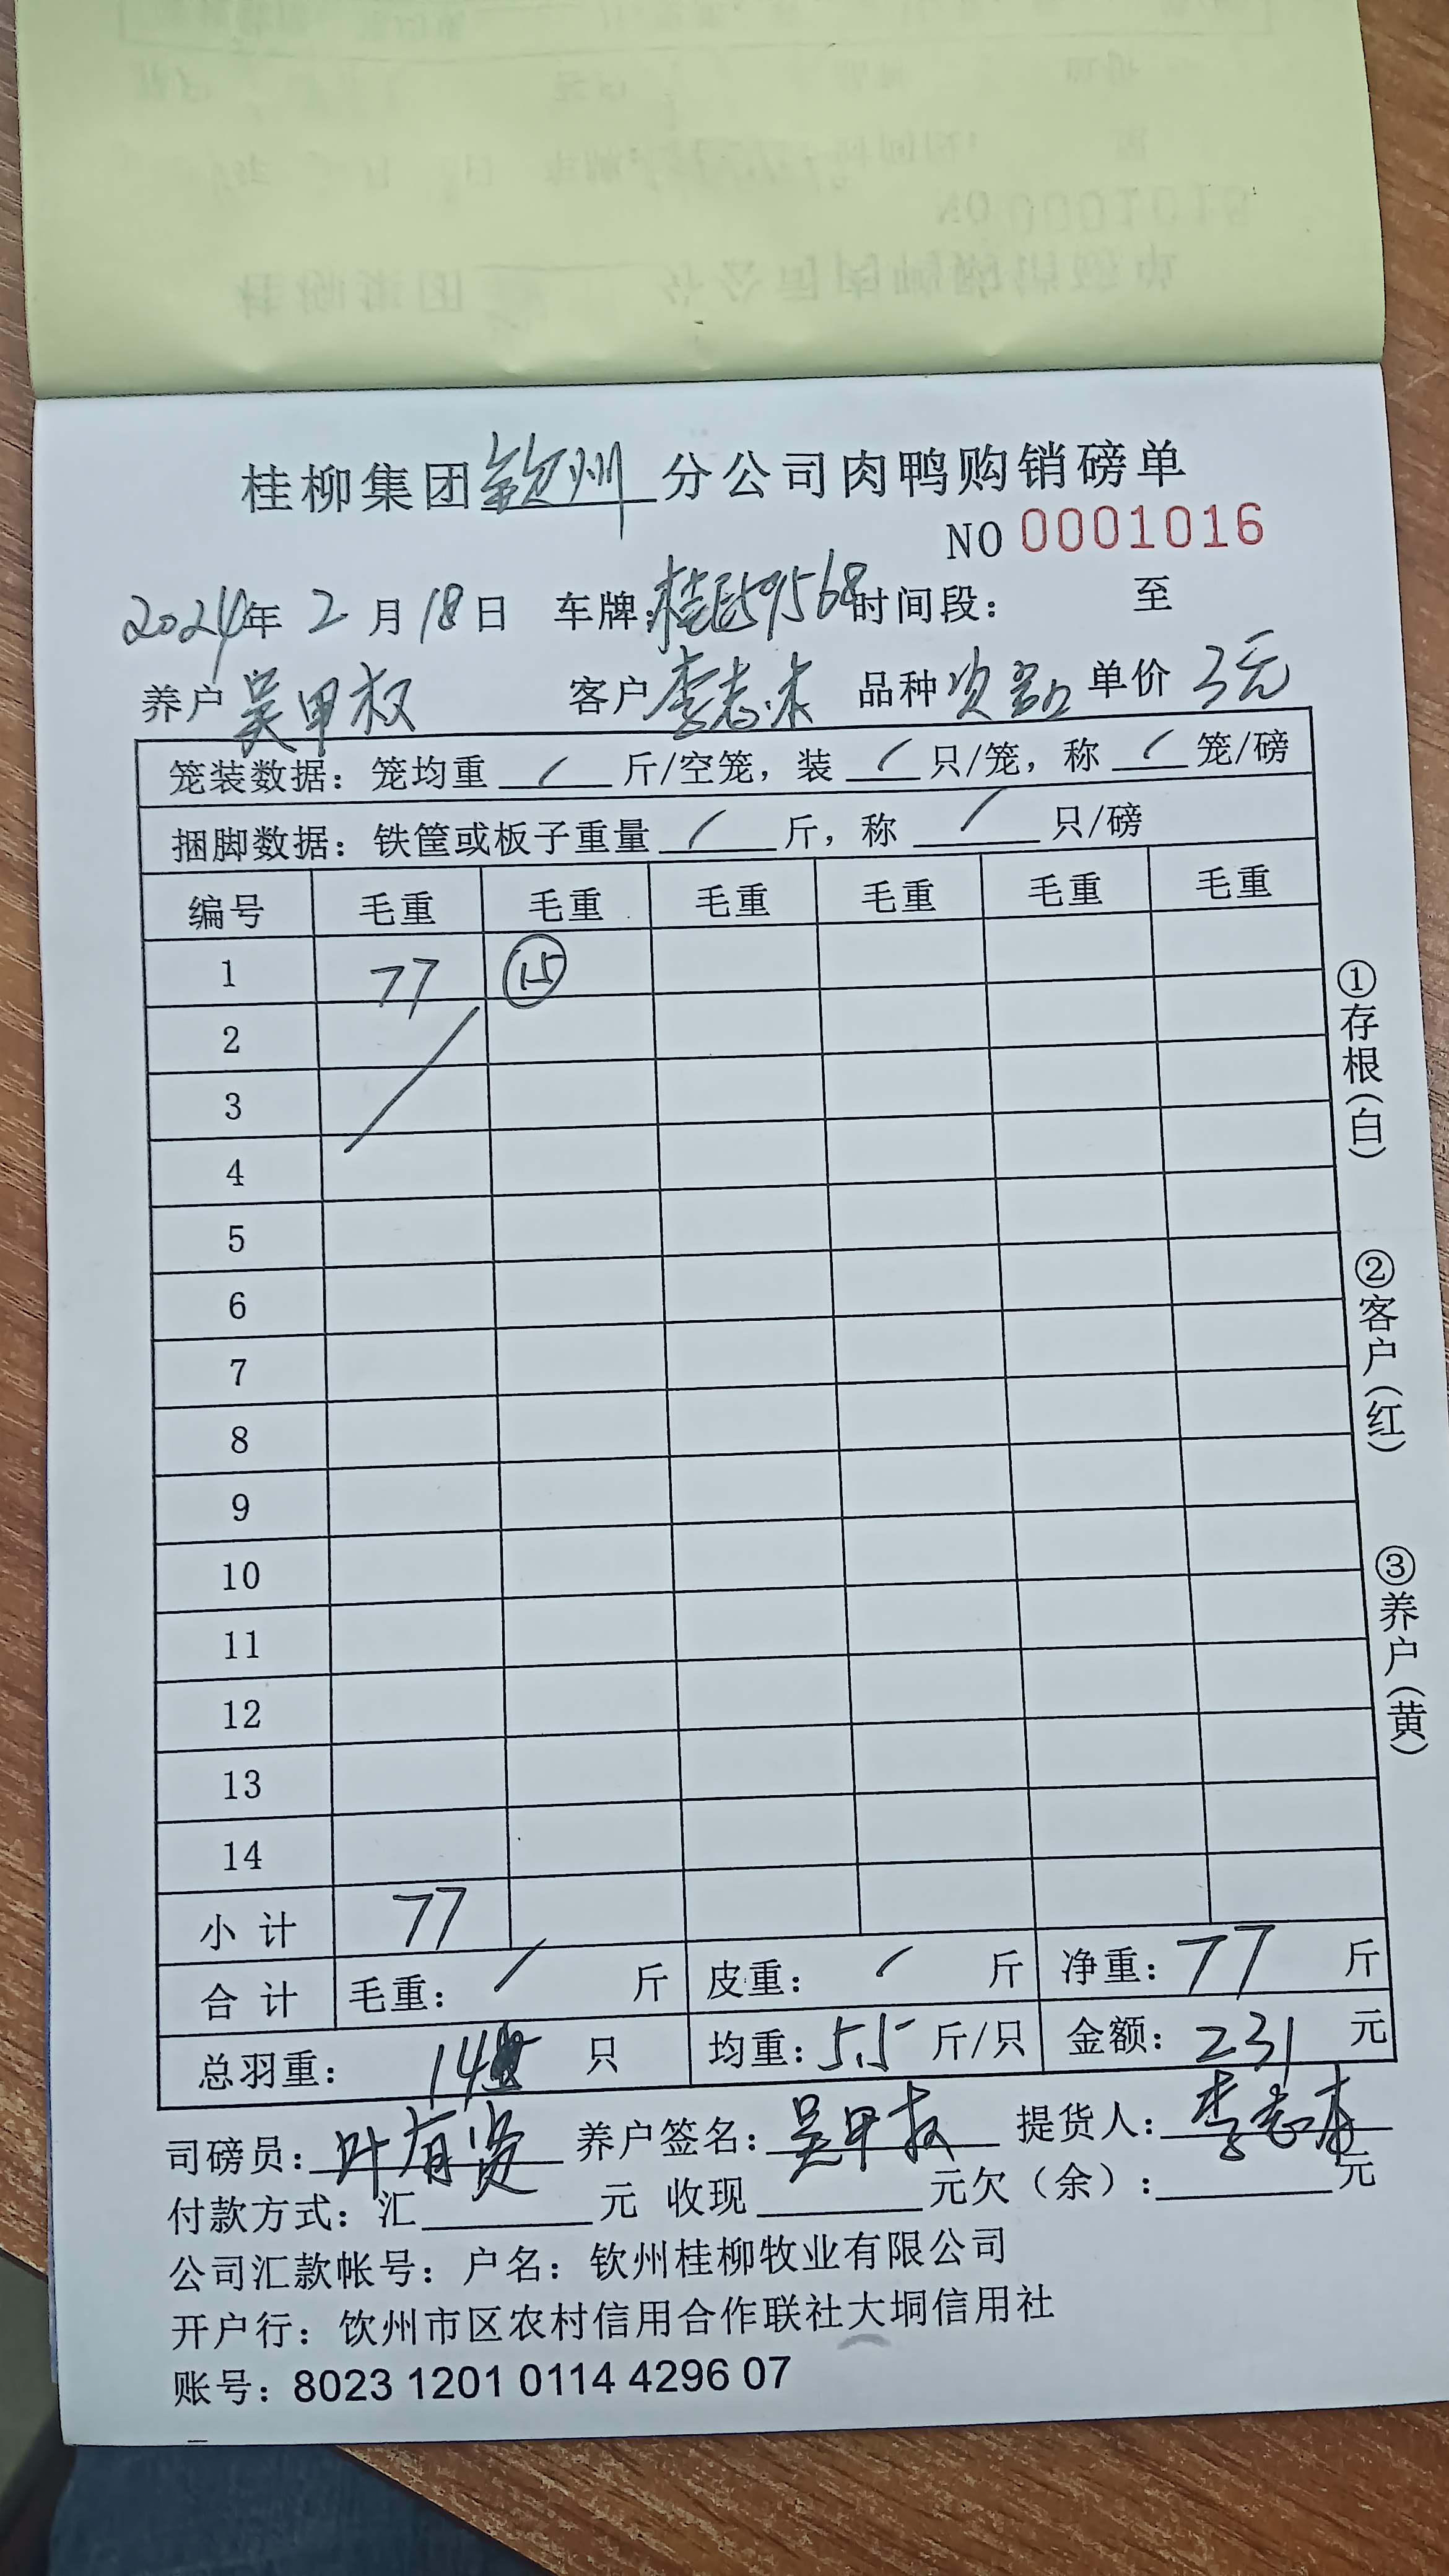 桂柳集团钦州分公司肉鸭购销磅单
NO 0001016
2024年2月18日 车牌:桂E59568时间段: 至
养户吴甲权 客户李志木 品种次品 单价3元
笼装数据: 笼均重 / 斤/空笼, 装 / 只/笼, 称 / 笼/磅
捆脚数据: 铁筐或板子重量 / 斤, 称 / 只/磅
编号 毛重 毛重 毛重 毛重 毛重 毛重
1 77 15
2
3
4
5
6
7
8
9
10
11
12
13
14
小计 77
合计 毛重: / 斤 皮重: / 斤 净重: 77 斤
总羽重: 14 只 均重: 5.5 斤/只 金额: 231 元
司磅员: 叶有 养户签名: 吴甲权 提货人: 李志
付款方式: 汇 元 收现 元欠(余): 元
公司汇款帐号: 户名: 钦州桂柳牧业有限公司
开户行: 饮州市区农村信用合作联社大垌信用社
账号: 8023 1201 0114 4296 07
①存根(白)
②客户(红)
③养户(黄)